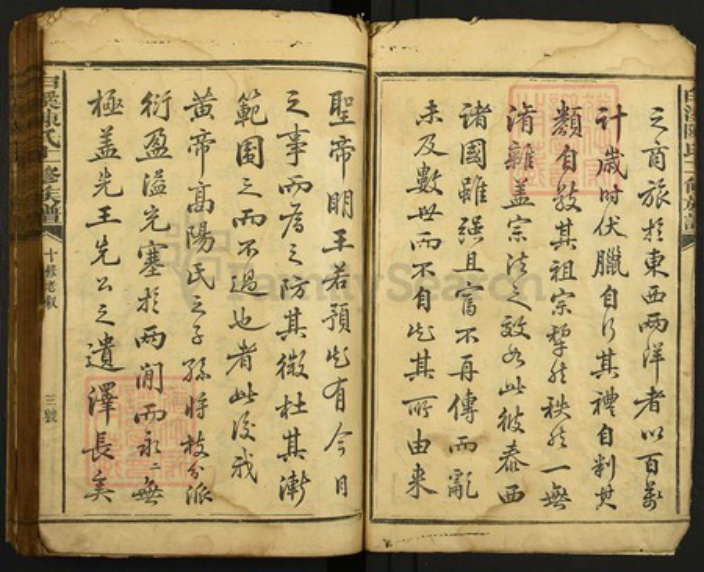 之商旅於東西兩洋者以百萬
計歲时伏臘自行其禮自判其
類自敍其祖宗犂然秩然一無
淆雜盖宗法之效如此彼泰西
諸國雖强且富不再傳而亂
未及數世而不自知其所由来
聖帝明王若預知有今日
之事而為之防其微杜其漸
範圍之而不過也者此後我
黄帝高陽氏之子孫將枝分派
衍盈溢充塞於兩間而永永無
極盖先王先公之遺澤長矣
白溪陳氏二修族譜
十修老叙
三號
FamilySearch